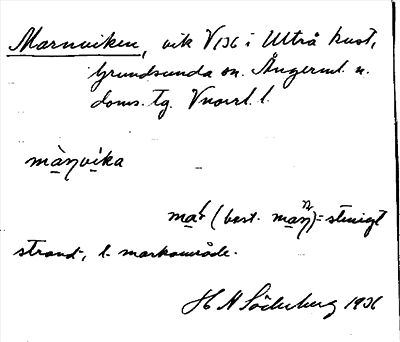 Marnviken, vik V136 i Ultrå kust,
Grundsunda sn. Ångerml. n.
doms. tg. Vnorrl. l.
màṇvika
mar (best. maṇ) = stenigt
strand-, l. markområde.
H N Söderberg 1936